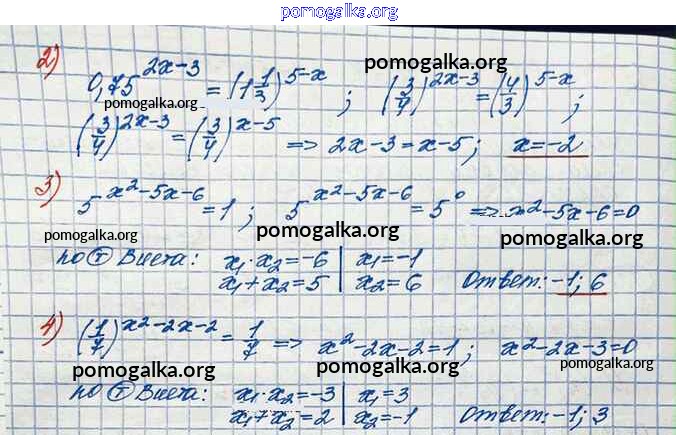 pomogalka.org
2)
0,75^(2x-3) = (1 1/3)^(5-x) ; (3/4)^(2x-3) = (4/3)^(5-x) ;
pomogalka.org pomogalka.org
(3/4)^(2x-3) = (3/4)^(x-5) => 2x-3=x-5; x=-2
3) 5^(x²-5x-6) = 1 ; 5^(x²-5x-6) = 5⁰ => x²-5x-6=0
pomogalka.org pomogalka.org pomogalka.org
по Т Виета: x₁·x₂=-6 | x₁=-1
x₁+x₂=5 | x₂=6 Ответ: -1; 6
4) (1/7)^(x²-2x-2) = 1/7 => x²-2x-2=1; x²-2x-3=0
pomogalka.org pomogalka.org pomogalka.org
по Т Виета: x₁·x₂=-3 | x₁=3
x₁+x₂=2 | x₂=-1 Ответ: -1; 3